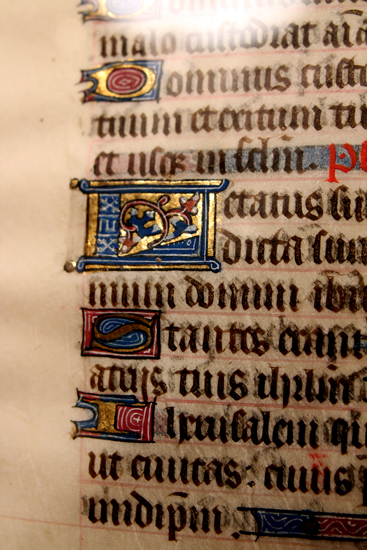 malo custodiat aīa
Dominus custo
tuum et exitum tu
et usq in sclm. ps
Letatus su
dicta sun
mum domini ibi
Stantes erant
atriis tuis ihrlm
Ihrusalem qu
ut civitas: cuius p
in idipm.